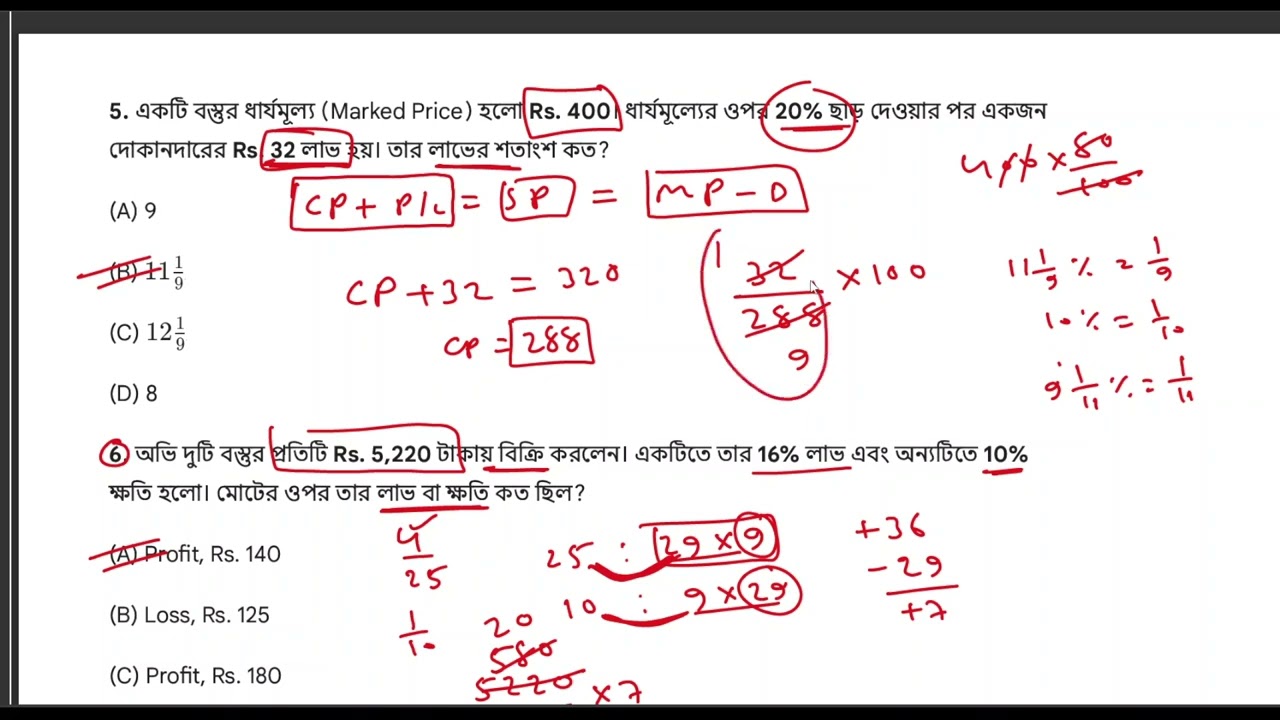 5. একটি বস্তুর ধার্যমূল্য (Marked Price) হলো Rs. 400। ধার্যমূল্যের ওপর 20% ছাড় দেওয়ার পর একজন
দোকানদারের Rs 32 লাভ হয়। তার লাভের শতাংশ কত?
400 × 80/100
CP + P/L = SP = MP - D
(A) 9
(B) 11 1/9
CP + 32 = 320
1 32/288 9 × 100
11 1/9 % = 1/9
10% = 1/10
(C) 12 1/9
CP = 288
9 1/11 % = 1/11
(D) 8
6. অভি দুটি বস্তুর প্রতিটি Rs. 5,220 টাকায় বিক্রি করলেন। একটিতে তার 16% লাভ এবং অন্যটিতে 10%
ক্ষতি হলো। মোটের ওপর তার লাভ বা ক্ষতি কত ছিল?
(A) Profit, Rs. 140
4/25
25 : 29 × 9
+36
- 29
+7
(B) Loss, Rs. 125
1/10
10 : 9 × 29
20
580
(C) Profit, Rs. 180
5220 × 7